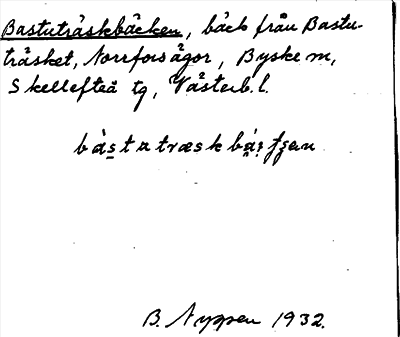 Bastuträskbäcken, bäck från Bastu-
träsket, Norrfors ägor, Byske sn,
Skellefteå tg, Västerb. l.
B. Nyppen 1932.